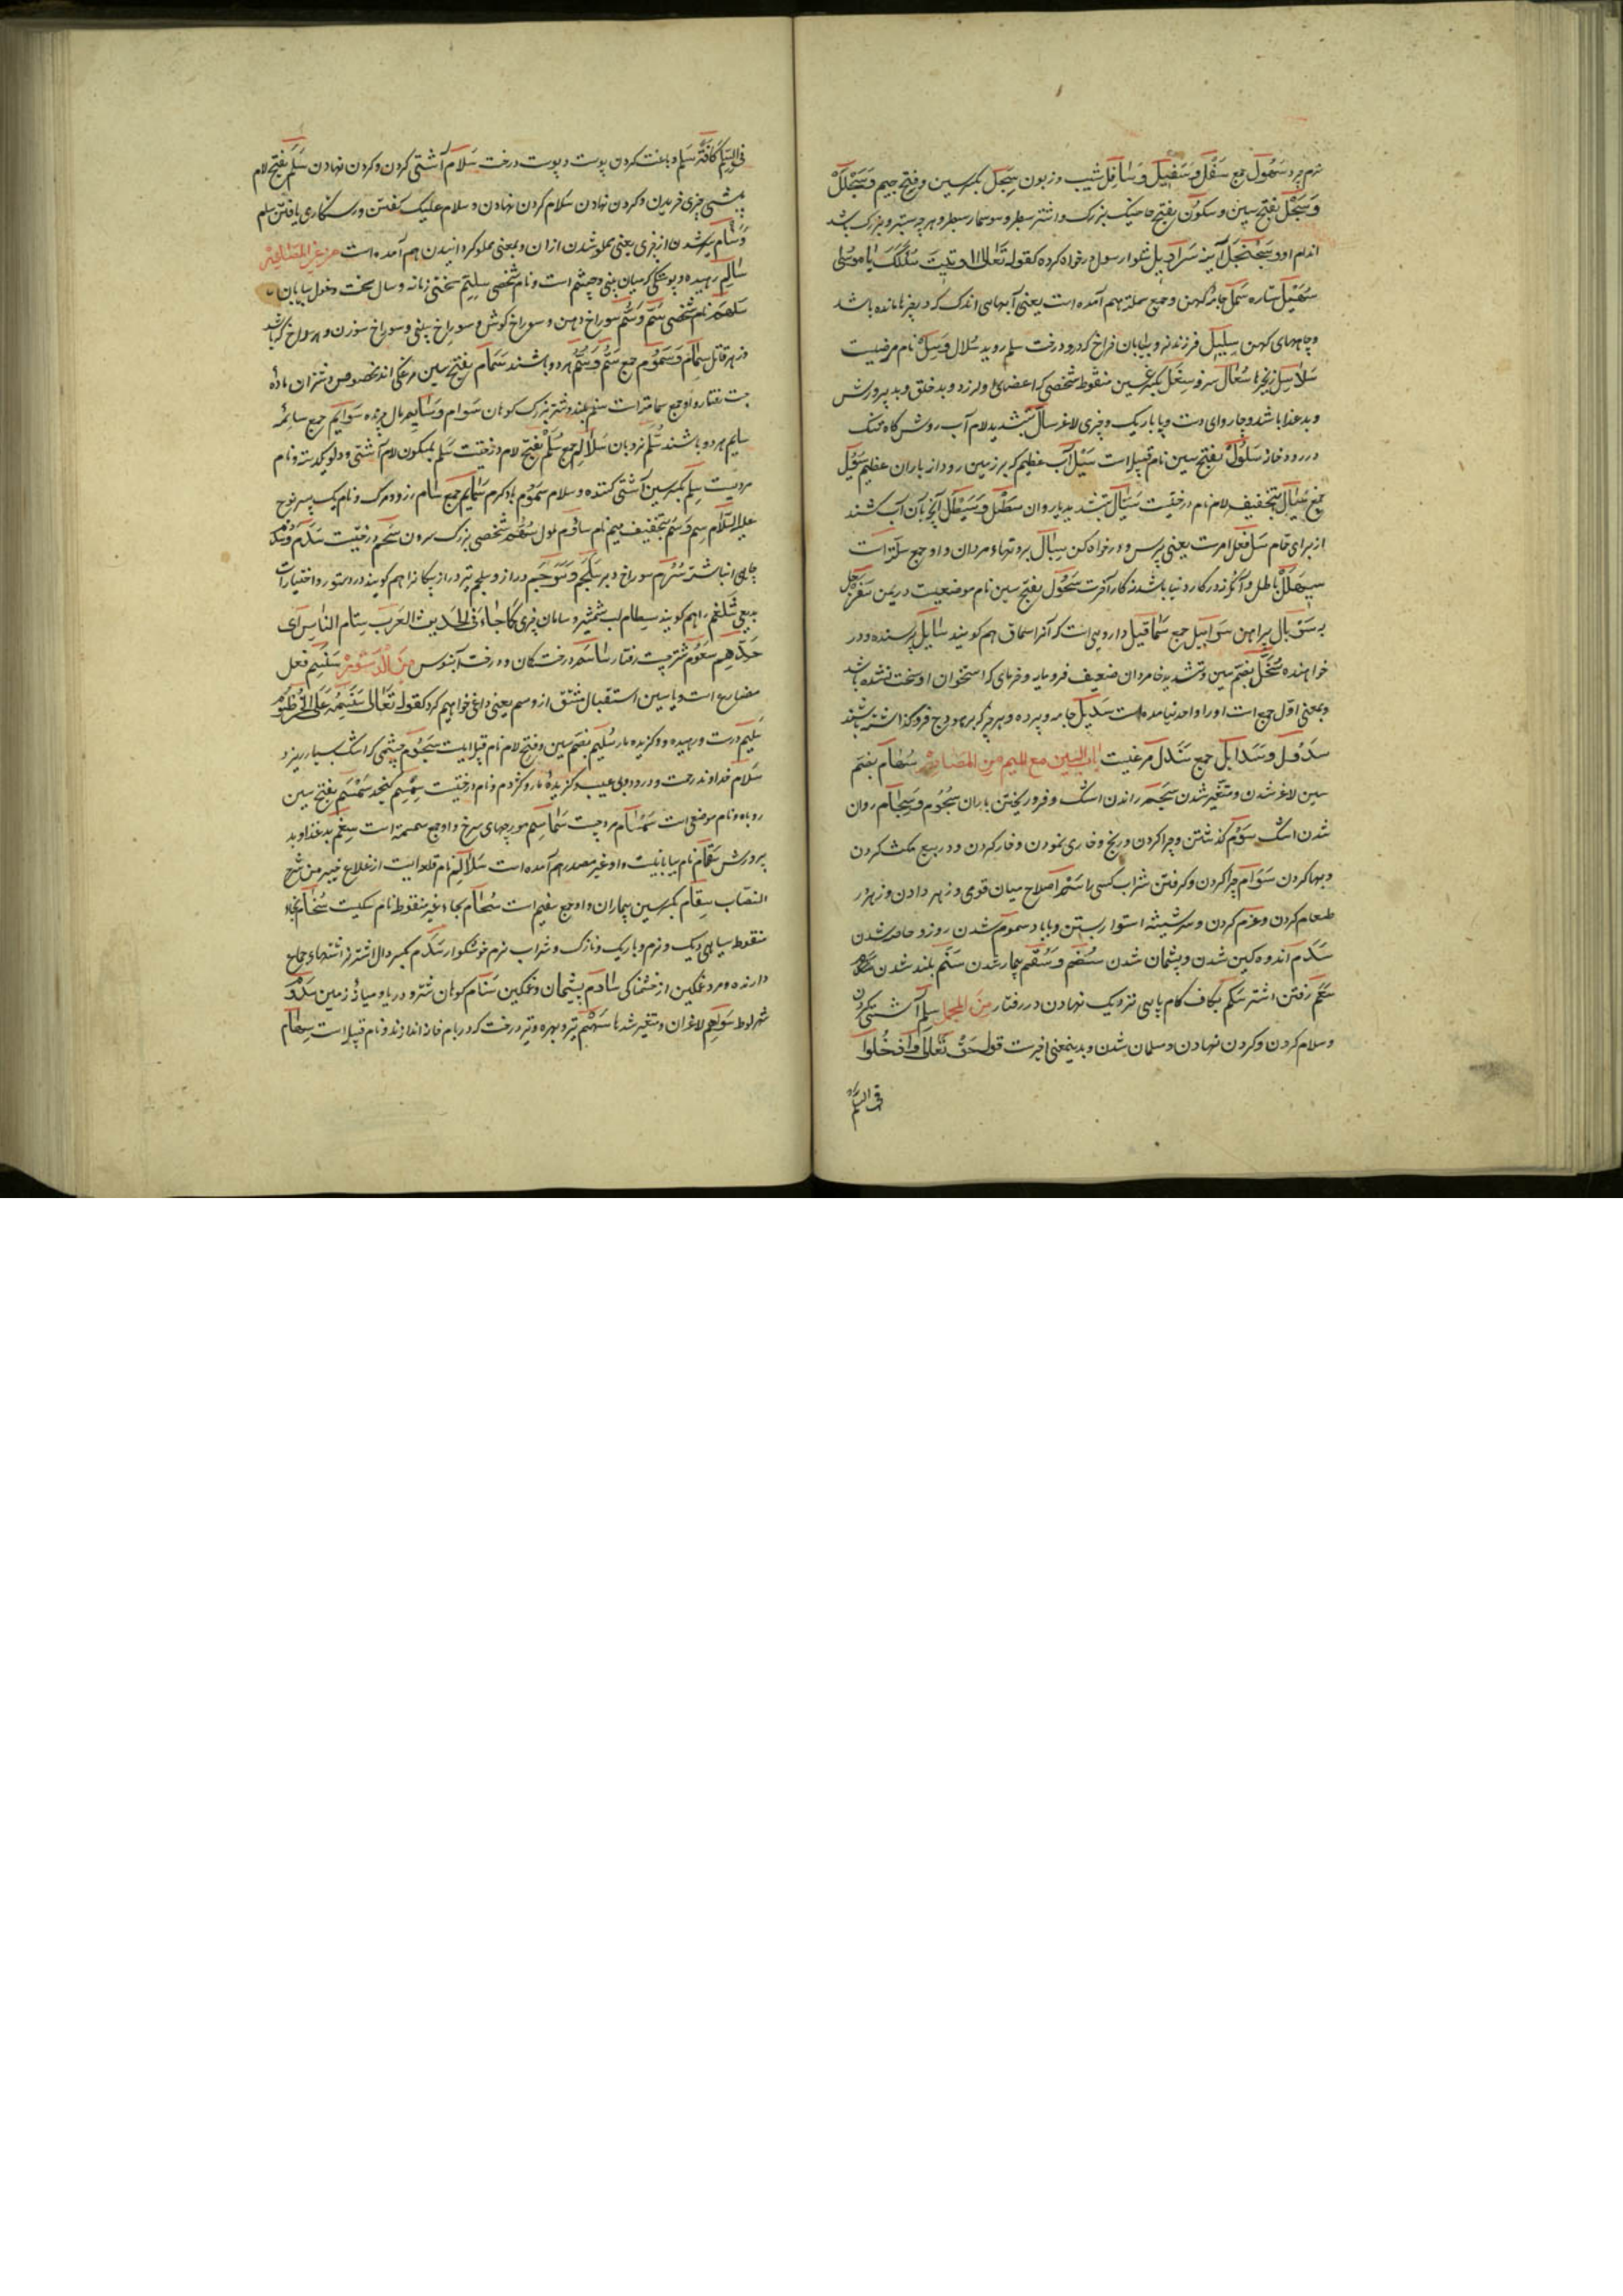 نرم و سمول جمع سفل و سفیل و سافل شیب و زبون سجل بکسر سین و فتح جیم و سحلل
و سجل بفتح سین و سکون بفتح خاسک بزرک و اشتر سطبر و سوسمار سطبر و هر چه ستبر و بزرک باشد
اندام او و سجنجل آینه سرادیل شلوار سول درخواه کرده کقوله تعالی اوتیت سؤلک یا موسی
سهیل ستاره سمل جامهٔ کهن و جمع سملة هم آمده است یعنی آبهای اندک که در بغرها مانده باشد
و جاهای کهن سلیل فرزند نرینه و بیابان فراخ که درو درخت سلم روید سلال و سل نام مرضیست
سلاسل زنجیرها سعال سرفه سغل بکسر غین منقوط شخصی که اعضای او لرزد و بد خلق و بد پرورش
و بد غذا باشد و چاروای دست و پا باریک و چیزی لاغر سال بتشدید لام آب روش کاه تنک
در رودخانه سلول بفتح سین نام قبیله است سیل آب عظیم که بر زمین رود از باران عظیم سیول
جمع سیال بتخفیف لام نام درختیست سیال بتشدید یا روان سطل و سیطل آنچه بآن آب کشند
از برای حمام سل فعل امرست یعنی پرس و درخواه کن سبال بروتها و مردان و او جمع سبلة است
سبهلل باطل و آنکه نه در کار دنیا باشد نه کار آخرت سحول بفتح سین نام موضعیست در یمن سفرجل
به سربال پیراهن سرابیل جمع سماقیل دارویی است که آنرا سماق هم کویند سایل پرسنده و در
خواهنده سخل بضم سین و تشدید خا مردان ضعیف فرومایه و خرمای که استخوان او سخت نشده باشد
و بمعنی اول جمع است او را واحد نیامده است سدیل جامه و پرده و هر چیز که بر هودج فرو کذاشته باشند
سدول و سدایل جمع سندل مرغیست باب السین مع المیم من المصادر سهام بضم
سین لاغر شدن و متغیر شدن سجم راندن اشک و فرو ریختن باران سجوم و سجام روان
شدن اشک سوم کذشتن و چرا کردن و رنج و خاری نمودن و خار کردن و در بیع مکث کردن
و بها کردن سوام چرا کردن و کرفتن شراب کسی را سم اصلاح میان قوی و زهر دادن و زهر در
طعام کردن و عزم کردن و سر شیشه استوار بستن و با باد سموم شدن روز و خاصه شدن
سدم اندوهکین شدن و پشمان شدن سقم و سقم بیمار شدن سنم بلند شدن
سعم رفتن اشتر سکم بکاف کام پاپی نزدیک نهادن در رفتار من المجمل سلم آشتی کردن
و سلام کردن و کردن نهادن و مسلمان شدن و بدینمعنی اخیرست قول حق تعالی وادخلوا
فی السلم
فی السلم کافة سلم دباغت کردن پوست و پوست درخت سلام آشتی کردن و کردن نهادن سلم بفتح لام
پیشی چیزی خریدن و کردن نهادن سلام کردن نهادن و سلام علیک کفتن و رستکاری یافتن سلم
و سام سیر شدن از چیزی یعنی مملو شدن از آن و بمعنی مملو کردانیدن هم آمده است من غیر المصادر
سالم رهیده و پوستکی که میان بینی و چشم است و نام شخصی سلتم سختی زمانه و سال سخت و غول بیابان
سلهم نام شخصی سم و سم سوراخ دهن و سوراخ کوش و سوراخ بینی و سوراخ سوزن و هر سوراخ که باشد
و زهر قاتل سمام و سموم جمع سم و سم هر دو باشند سمام بفتح سین مرغکی اند مخصوص و شتران ماده
چست رفتار و او جمع سمامه است سنم بلند و شتر بزرک کوهان سوام و سایم مال چرنده سوایم جمع سائمه
سایم هر دو باشند سلم نردبان سلالم جمع سلم بفتح لام درختیست سلم بسکون لام آشتی و دلو یکدسته و نام
مردیست سلم بکسر سین آشتی کننده و سلام سموم باد کرم سمایم جمع سام زر و مرک و نام یک پسر نوح
علیه السلام سم و سم بتخفیف میم نام ساوم ملول شخصی بزرک سرون سحم درختیست سدم و سدم
چاهی انباشته سرم سوراخ دبر سلجم و سوجم دراز و سلجم تیر دراز پیکانرا هم کویند در دستور و اختیارات
بدیعی شلغم را هم کویند سطام لب شمشیر و سامان چیزی کما جاء فی الحدیث العرب سطام الناس ای
حدهم سعوم شتر چست رفتار ساسم درخت کمان و درخت آبنوس من الدستور سنسم فعل
مضارع است و با سین استقبال مشتق از وسم یعنی داغ خواهیم کرد کقوله تعالی سنسمه علی الخرطوم
سلیم درست و رهیده و کزیده مار سلیم بضم سین و فتح لام نام قبیله ایست سجوم چشمی که اشک بسیار ریزد
سلام خداوند رحمت و درود و بی عیب و کزیدهٔ مار و کژدم و نام درختیست سمسم کنجد سمسم بفتح سین
روباه و نام موضعی است سمسام مرد چست سماسم مورچهای سرخ و او جمع سمسمة است سغم بد غذا و بد
پرورش سقام نام بیابانیست و او غیر مصدر هم آمده است سلالم نام قلعه ایست از قلاع خیبر من شرح
النصاب سقام بکسر سین بیماران و او جمع سقیم است سحام بحاء غیر منقوط نام سکیست سخام بخاء
منقوط سیاهی دیک و نرم و باریک و نازک و شراب نرم خوشکوار سدم بکسر دال اشتر نر اشتهای جماع
دارنده و مرد غمکین از خشمناکی سادم پشیمان و غمکین سنام کوهان شتر و در یا و میانهٔ زمین سدوم
شهر لوط سواهم لاغران و متغیر شدها سهم تیر و بهره و تیر درخت که در بام خانه اندازند و نام قبیله است سهام